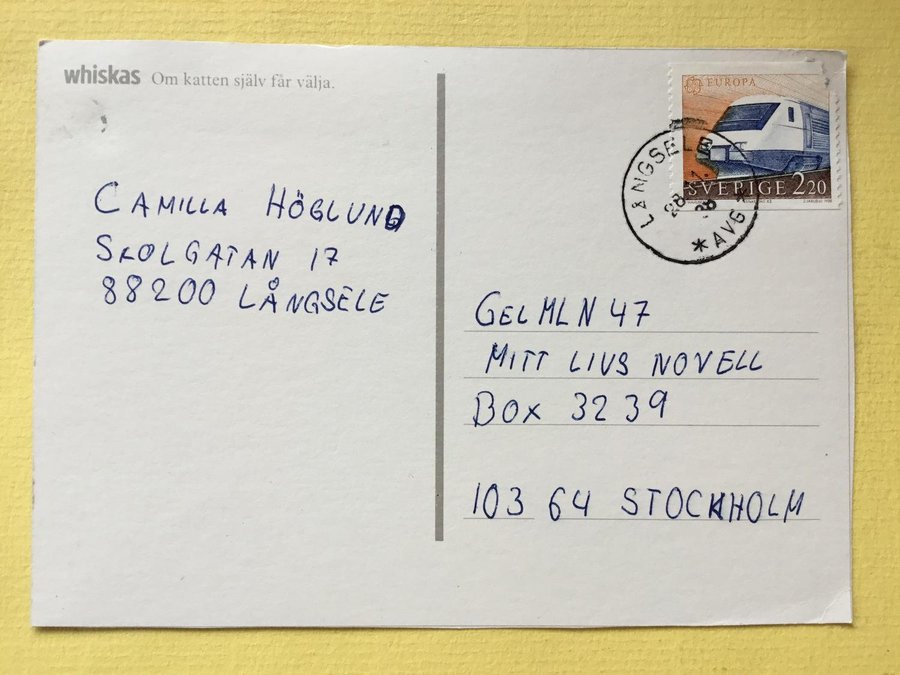 whiskas Om katten själv får välja.
CAMILLA HÖGLUND
SKOLGATAN 17
88200 LÅNGSELE
EUROPA
SVERIGE 220
LÅNGSELE
AVG
GELMLN 47
MITT LIVS NOVELL
BOX 3239
103 64 STOCKHOLM